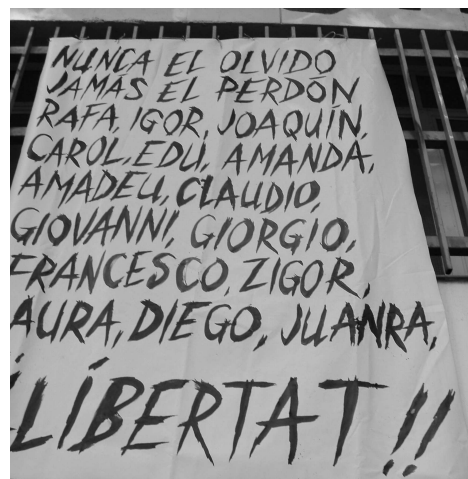 NUNCA EL OLVIDO
JAMÁS EL PERDÓN
RAFA, IGOR, JOAQUÍN,
CAROL, EDU, AMANDA,
AMADEU, CLAUDIO,
GIOVANNI, GIORGIO,
FRANCESCO, ZIGOR,
AURA, DIEGO, JUANRA,
¡LLÍBERTAT!!